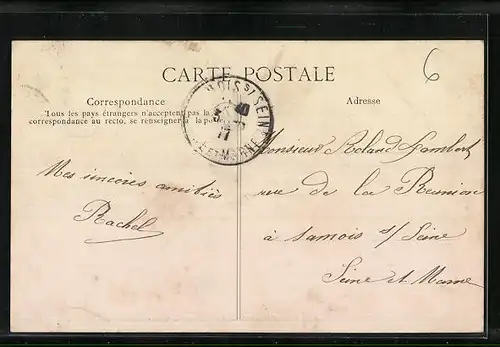 CARTE POSTALE
6
Correspondance
Tous les pays étrangers n'acceptent pas la
correspondance au recto. se renseigner à la po
Adresse
OIS S/ SEIN
ET MARNE
Mes sincères amitiés
Rachel
Monsieur Roland Lambert
rue de la Réunion
à Samois s/ Seine
Seine et Marne